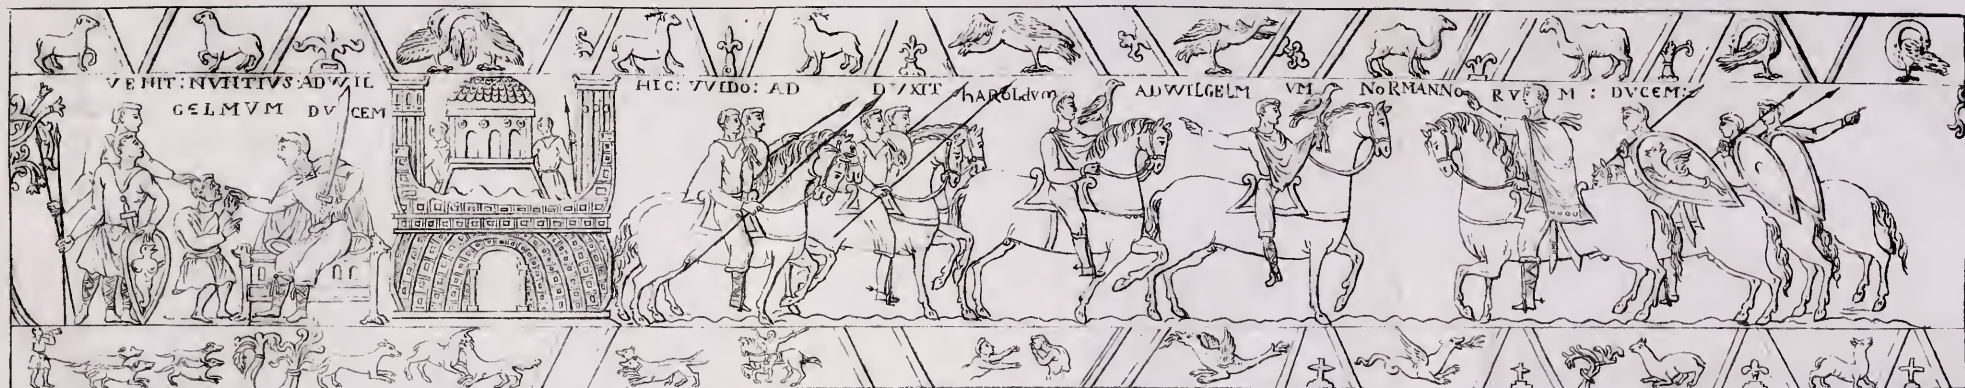 VENIT: NVNTIVS: AD WIL
GELMVM DVCEM
HIC: VVIDO: AD DVXIT hAROLDVM AD WILGELM VM NORMANNO RV M : DVCEM: